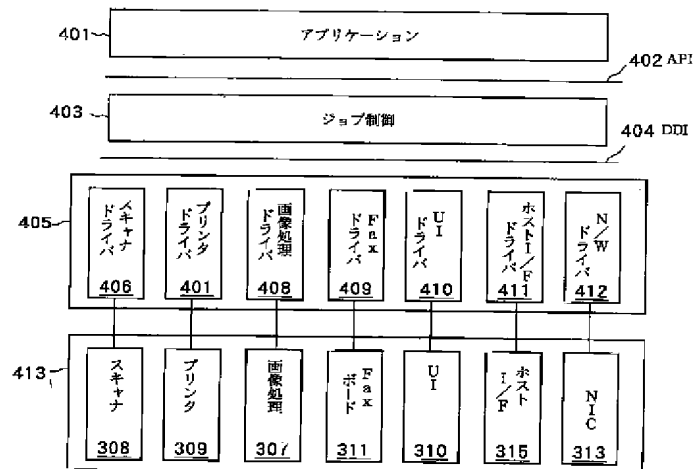 401
アプリケーション
402 API
403
ジョブ制御
404 DDI
405
スキャナ
ドライバ
406
プリンタ
ドライバ
401
画像処理
ドライバ
408
Fax
ドライバ
409
UI
ドライバ
410
ホストI/F
ドライバ
411
N/W
ドライバ
412
413
スキャナ
308
プリンタ
309
画像処理
307
Fax
ボード
311
UI
310
ホスト
I/F
315
NIC
313